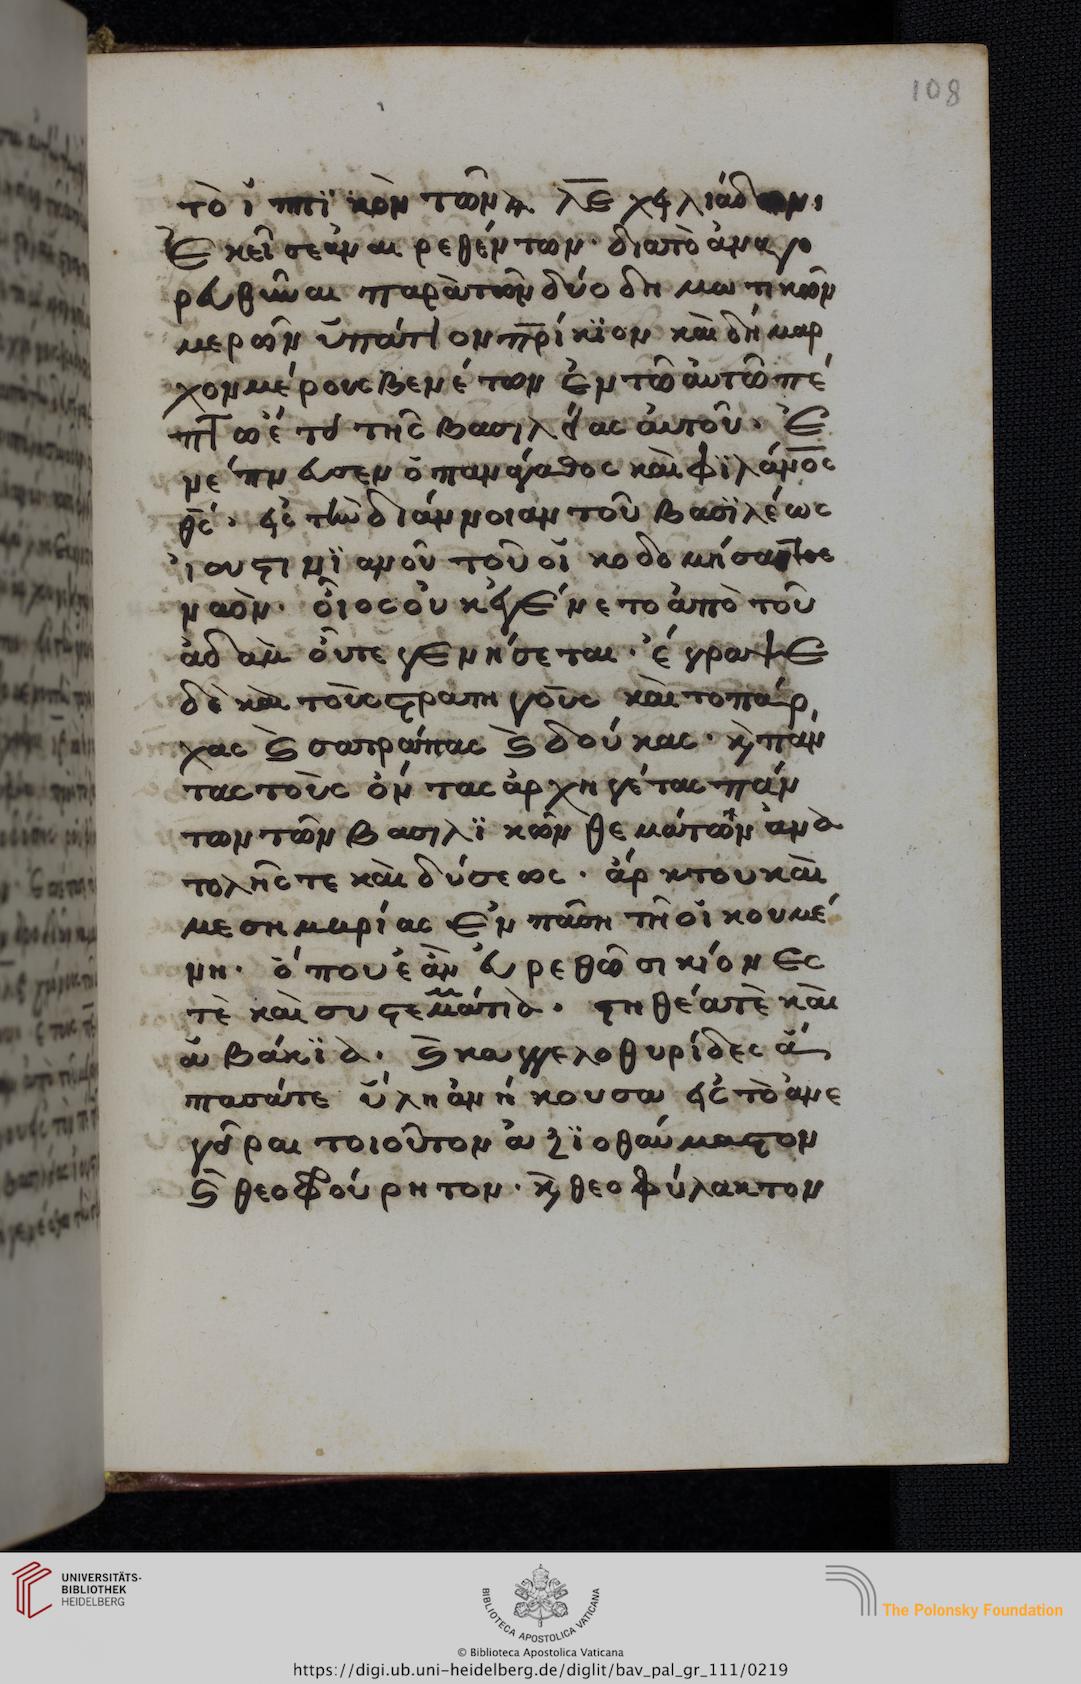 108
τὸ ἱππϊκὸν τῶν λε χιλιάδων·
Ἐκεῖσε ἀναιρεθέντων· διατὸ ἀναγο
ρευθῆναι παρὰ τῶν δύο δημωτικῶν
μερῶν ὑπάτιον πρίκϊον καὶ δήμαρ
χον μέρους βενέτων ἐν τῶ ἀυτῶ πέ
πτω ἔτει τῆς βασιλείας ἀυτοῦ· Ἐ
νέπνευσεν ὁ πανάγαθος καὶ φϊλάνος
θς· εἰς τὴν διάννοιαν τοῦ βασϊλέως
ἰουστινϊανοῦ τοῦ οἰκοδομήσαντος
ναὸν· οἷος οὐκ ἐγένετο ἀπὸ τοῦ
ἀδὰμ οὔτε γενήσεται· ἔγραψε
δὲ καὶ τοὺς στρατηγοὺς καὶ τοπάρ
χας καὶ σατράπας καὶ δούκας· καὶ πάν
τας τοὺς ὄντας ἀρχηγέτας πάν
των τῶν βασιλϊκῶν θεμάτων ἀνα
τολῆς τε καὶ δύσεως· ἄρκτου καὶ
μεσημβρίας ἐν πάση τῆ οἰκουμέ
νη· ὅπου ἐὰν εὑρεθῶσι κίονες
τὲ καὶ συστεμάτια· στηθέατὲ καὶ
ἀβάκϊα· καὶ καγγελοθυρίδες ἅ
πασάτε ὕλη ἀνήκουσα εἰς τὸ ἀνε
γεῖραι τοιοῦτον ἀξϊοθαύμαστον
καὶ θεοφούρητον· καὶ θεοφύλακτον
UNIVERSITÄTS-
BIBLIOTHEK
HEIDELBERG
BIBLIOTECA APOSTOLICA VATICANA
The Polonsky Foundation
© Biblioteca Apostolica Vaticana
https://digi.ub.uni-heidelberg.de/diglit/bav_pal_gr_111/0219